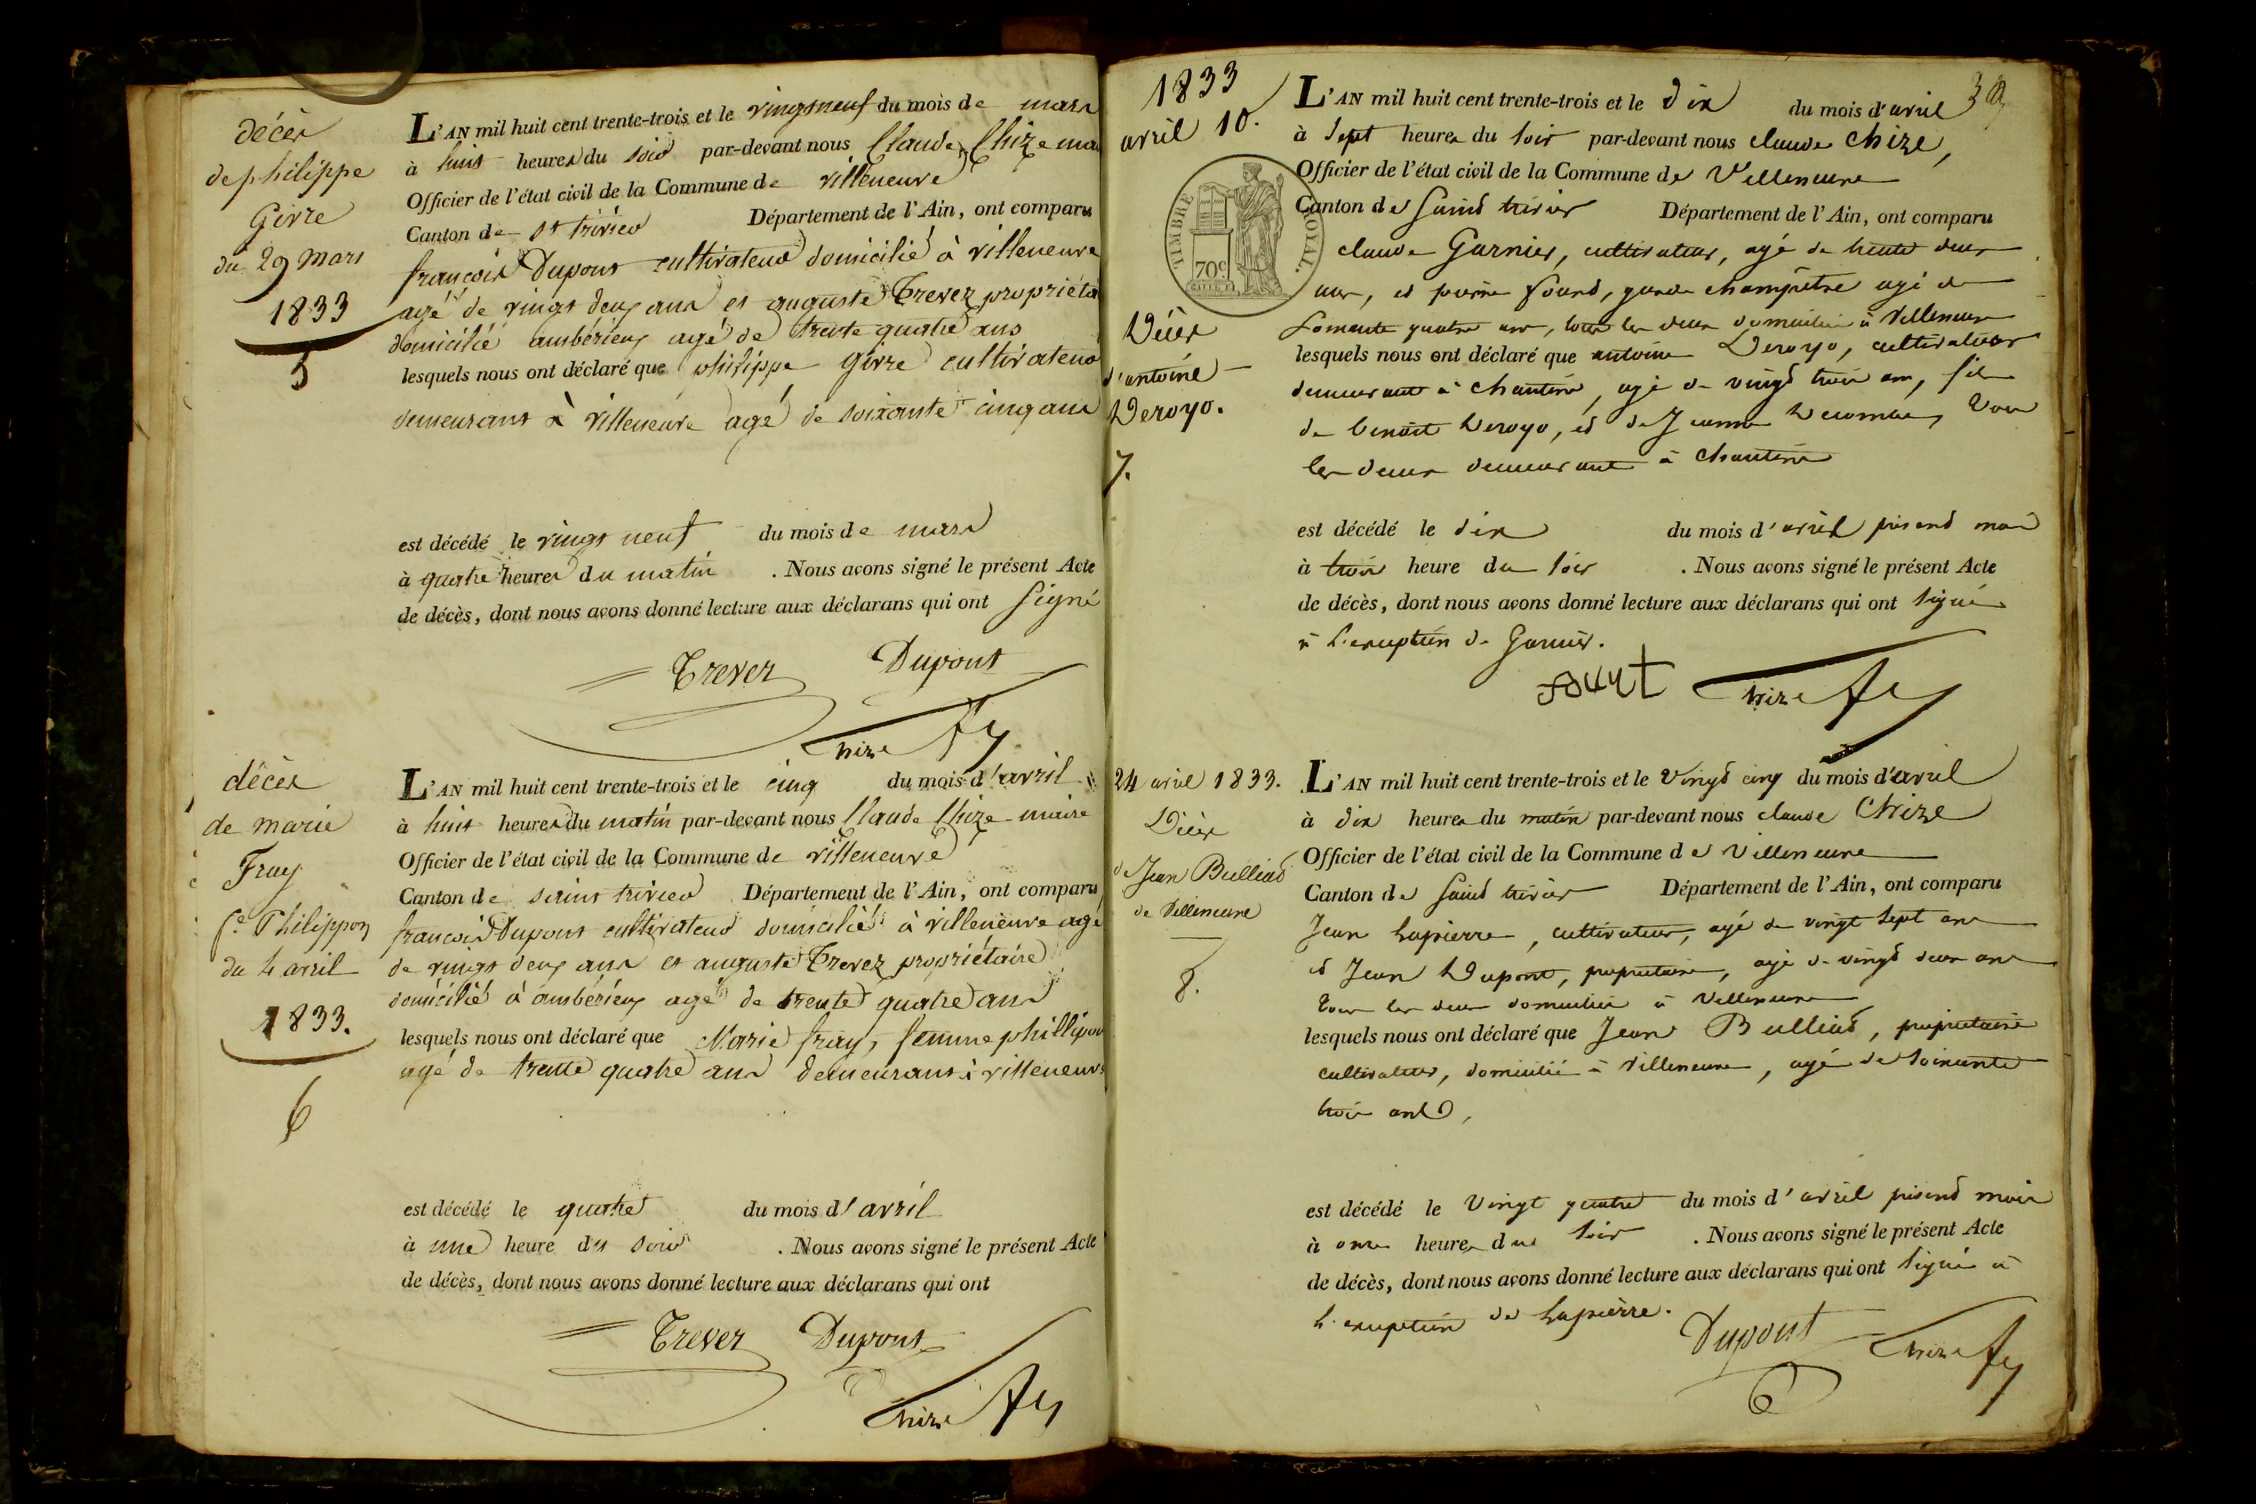 décès
de philippe
Givre
du 29 mars
1833
5
L'AN mil huit cent trente-trois et le vingt neuf du mois de mars
à huit heures du soir par-devant nous Claude Chize ma
Officier de l'état civil de la Commune de villeneuve
Canton de st trivier Département de l'Ain, ont comparu
françois Dupont cultivateur domicilié à villeneuve
agé de vingt deux ans et auguste Trevez propriéta
domicilié ambérieux agé de trente quatre ans
lesquels nous ont déclaré que philippe givre cultivateur
demeurant à villeneuve agé de soixante cinq ans
est décédé le vingt neuf du mois de mars
à quatre heures du matin . Nous avons signé le présent Acte
de décès, dont nous avons donné lecture aux déclarans qui ont signé
Trevez Dupont
Chize
décès
de marie
Fray
fe Philippon
du 4 avril
1833.
6
L'AN mil huit cent trente-trois et le cinq du mois d'avril
à huit heures du matin par-devant nous Claude Chize maire
Officier de l'état civil de la Commune de villeneuve
Canton de saint trivier Département de l'Ain, ont comparu
françois Dupont cultivateur domicilié à villeneuve agé
de vingt deux ans et auguste Trevez propriétaire
domicilié à ambérieux agé de trente quatre ans
lesquels nous ont déclaré que Marie fray, femme phillipon
agé de trente quatre ans demeurant à villeneuve
est décédé le quatre du mois d'avril
à une heure du soir . Nous avons signé le présent Acte
de décès, dont nous avons donné lecture aux déclarans qui ont
Trevez Dupont
Chize
1833
avril 10.
TIMBRE ROYAL.
70c
Décès
d'antoine
Deroyo.
7.
L'AN mil huit cent trente-trois et le dix du mois d'avril
à sept heures du soir par-devant nous claude Chize,
Officier de l'état civil de la Commune de Villeneuve
Canton de Saint trivier Département de l'Ain, ont comparu
claude Garnier, cultivateur, agé de trente deux
ans, et pierre Fourd, garde champêtre agé de
soixante quatre ans, tous les deux domiciliés à Villeneuve
lesquels nous ont déclaré que antoine Deroyo, cultivateur
demeurant à chanteins, agé de vingt trois ans, fils
de benoît Deroyo, et de Jeanne Decombe, tous
les deux demeurant à chanteins
est décédé le dix du mois d'avril présent mois
à trois heure du soir . Nous avons signé le présent Acte
de décès, dont nous avons donné lecture aux déclarans qui ont signé
à l'exception de Garnier.
Chize
24 avril 1833.
Décès
de Jean Bulliad
de Villeneuve
8.
L'AN mil huit cent trente-trois et le Vingt cinq du mois d'avril
à dix heures du matin par-devant nous claude Chize
Officier de l'état civil de la Commune de Villeneuve
Canton de Saint trivier Département de l'Ain, ont comparu
Jean Lapierre, cultivateur, agé de vingt sept ans
et Jean Dupont, propriétaire, agé de vingt deux ans
tous les deux domiciliés à Villeneuve
lesquels nous ont déclaré que Jean Bulliad, propriétaire
cultivateur, domicilié à Villeneuve, agé de soixante
trois ans,
est décédé le Vingt quatre du mois d'avril présent mois
à onze heures du soir . Nous avons signé le présent Acte
de décès, dont nous avons donné lecture aux déclarans qui ont signé à
l'exception de Lapierre.
Dupont Chize